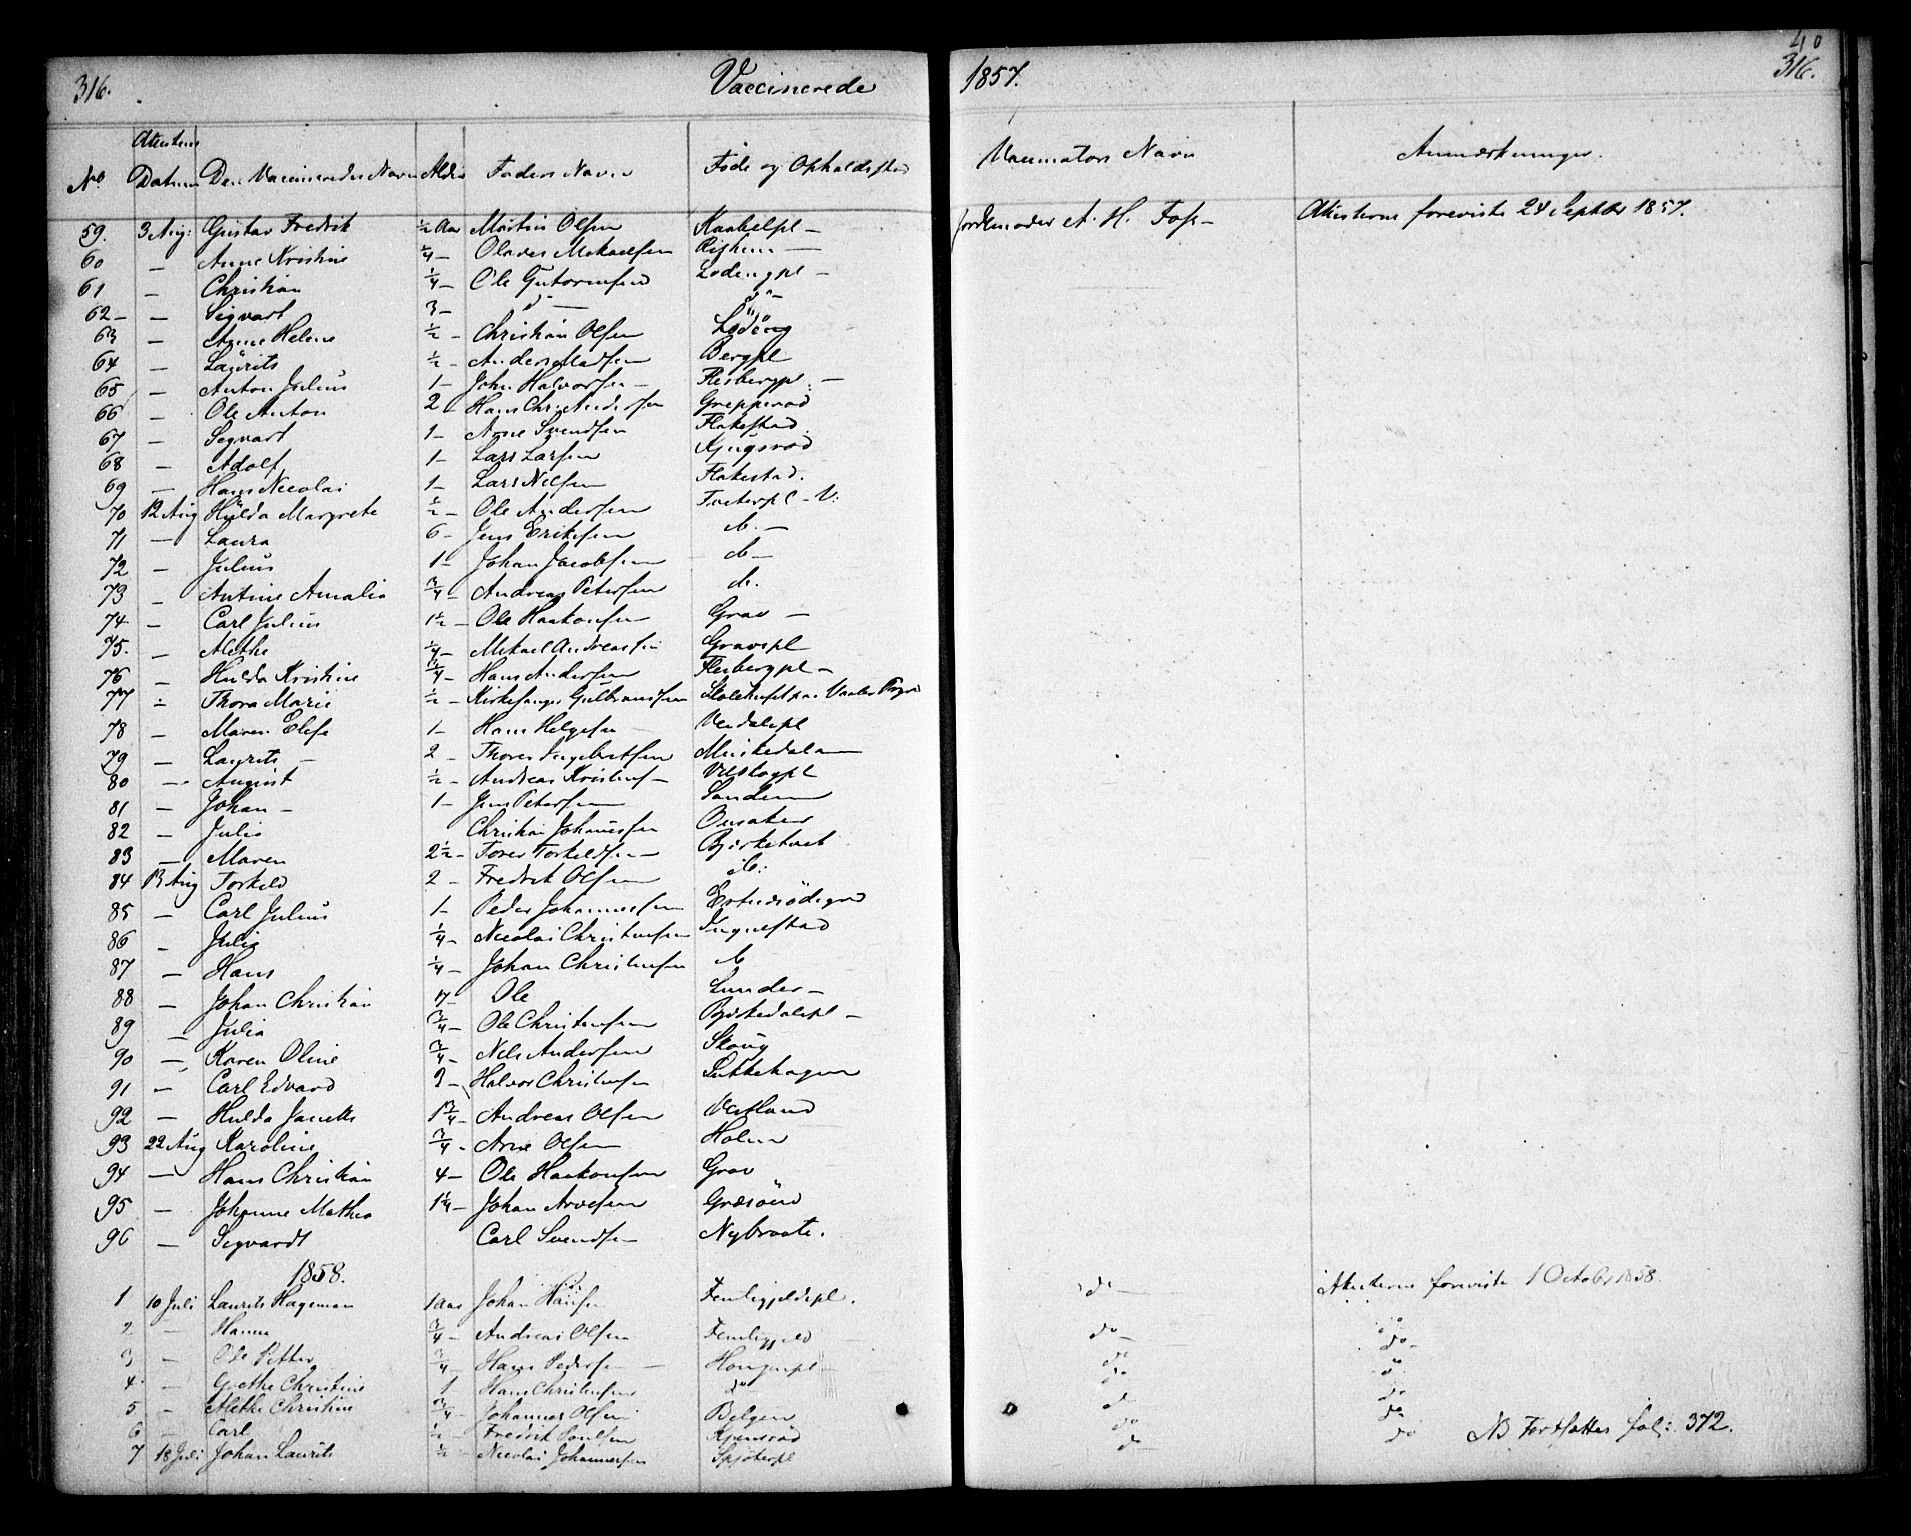 316. Vaccinerede 1857. 40 316.
No Attestens Datum Den Vaccineredes Navn Alder Faders Navn Føde og Opholdssted Vaccinators Navn Anmærkninger.
59. 3 Aug: Gustav Fredrik ½ Aar Martin Olsen Kaabelpl – Jordemoder A. H. Fosf – Attesterne foreviste 24 Septbr 1857.
60 – Anne Kristine ¼ –
61 – Christian ¼ – Ole Gutormsen Lødengpl –
62 – – Sigvart 3 – do – do –
63 – Anne Helene ½ – Christian Olsen Løding
64 – Laurits ½ – Anders Madsen Bergpl
65 – Anton Julius 1 – John Halvorsen – Flesbergpl. –
66 – Ole Anton 2 – Hans Chr: Andersen Grepperød
67 – Segvart 1 – Arne Svendsen Flakestad.
68 – Adolf 1 – Lars Larsen Kjugsrød
69 – Hans Nicolai 1 – Lars Nilsen Flakestad.
70 12 Aug Hulda Margrete ½ – Ole Andersen
71 – Laura 6 – Jens Eriksen do. –
72 – Julius 1 – Johan Jacobsen do –
73 – Antine Amalia ¾ – Andreas Petersen do.
74 – Carl Julius 1½ – Ole Haakonsen Grav –
75. – Alethe ¼ – Mikael Andreassen Gravspl
76 – Hulda Kristine ¾ – Hans Andersen Flesbergpl –
77 – Thora Marie ½ – Kirkesanger Gulbrandsen
78 – Maren Elise 1 – Hans Helgesen
79 – Laurits – 2 – Thorer Ingebretsen
80 – August ½ – Andreas Kristens –
81 – Johan – 1 – Jens Petersen Sanden
82 – Julia Christian Johannesen
83 – Maren 2½ – Torer Torkeldsen – Bjirketvet
84 13 Aug Torkeld 2 – Fredrik Olsen do:
85 – Carl Julius 1 – Peder Johannessen
86 – Julia ¼ – Nicolai Christensen
87 – Hans ¼ – Johan Christensen do
88 – Johan Christian Ole Lunder –
89 – Julia ¾ – Ole Christensen
90 – Karen Oline ¾ – Nels Andersen Skoug
91 – Carl Edvard Halvor Christensen
92 – Hulda Janette 1¾ – Andreas Olsen Vestland
93 22 Aug Karoline ¾ – Arne Olsen Holm
94 – Hans Christian 4 – Ole Haakonsen Grav
95 – Johanne Mathea 1¼ – Johan Arvesen
96 – Segvardt Carl Svendsen Nybraate.
1858.
1 10 Juli Laurits Hageman 1 aar Johan Hansen Femtegjeldspl. do – Attesterne foreviste 1 Octobr 1858.
2 – Hanna ¾ – Andreas Olsen do – do –
3 – Ole Petter ¾ – Hans Pedersen – do do
4 – Grethe Christine 1 Hans Christensen do do do
5 – Alethe Christine ¾ – Johannes Olsen do do
6 – Carl ½ – Fredrik Poulsen do do
7 18 Juli Johan Laurits ½ – Nicolai Johannesen do do NB Fortsættes fol: 372.